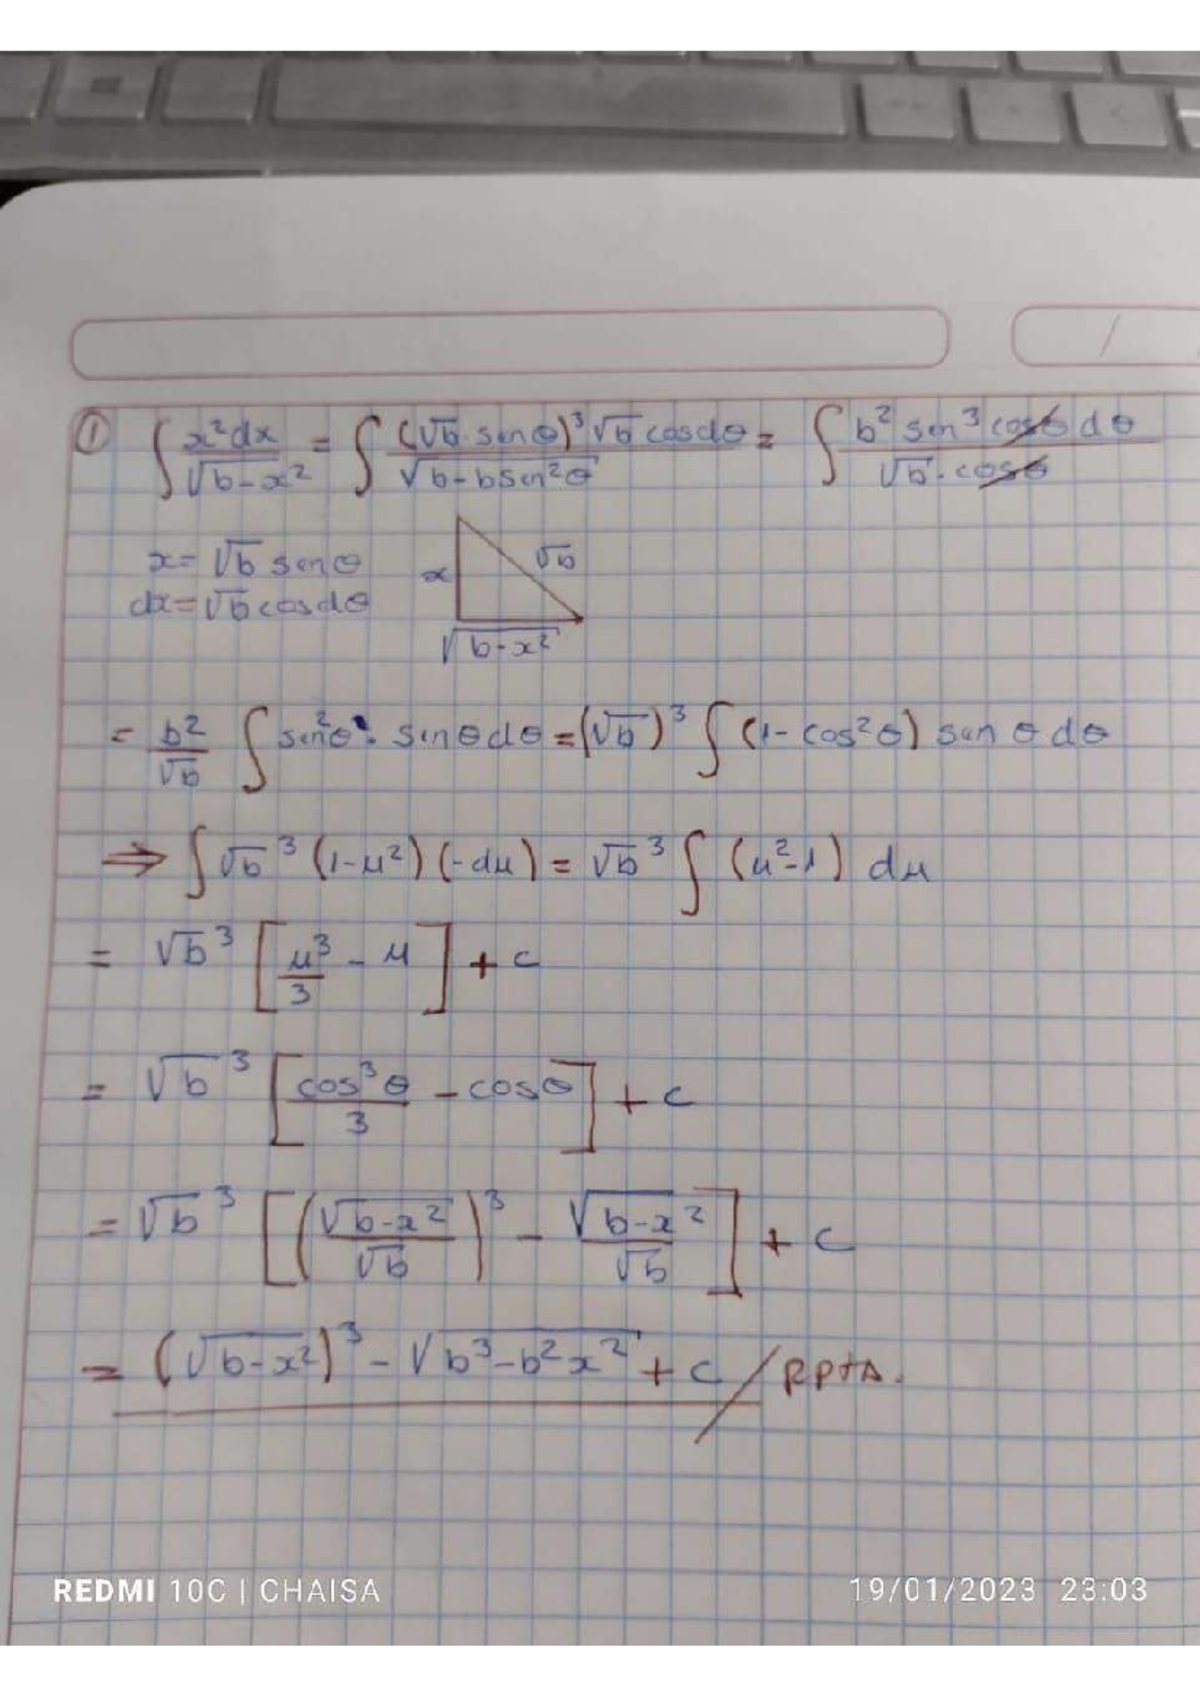 ① ∫ x²dx / √(b-x²) = ∫ (√b sen θ)³ √b cos dθ / √(b-bsen²θ) = ∫ b² sen³ cosθ dθ / √b · cosθ
x = √b sen θ
dx = √b cos dθ
x √b
√(b-x²)
= b²/√b ∫ sen²θ · sen θ dθ = (√b)³ ∫ (1-cos²θ) sen θ dθ
⇒ ∫ √b³ (1-u²) (-du) = √b³ ∫ (u²-1) du
= √b³ [u³/3 - u] + c
= √b³ [cos³θ/3 - cosθ] + c
= √b³ [(√(b-x²)/√b)³ - √(b-x²)/√b] + c
= (√(b-x²))³ - √(b³-b²x²) + c / RptA.
REDMI 10C | CHAISA 19/01/2023 23:03